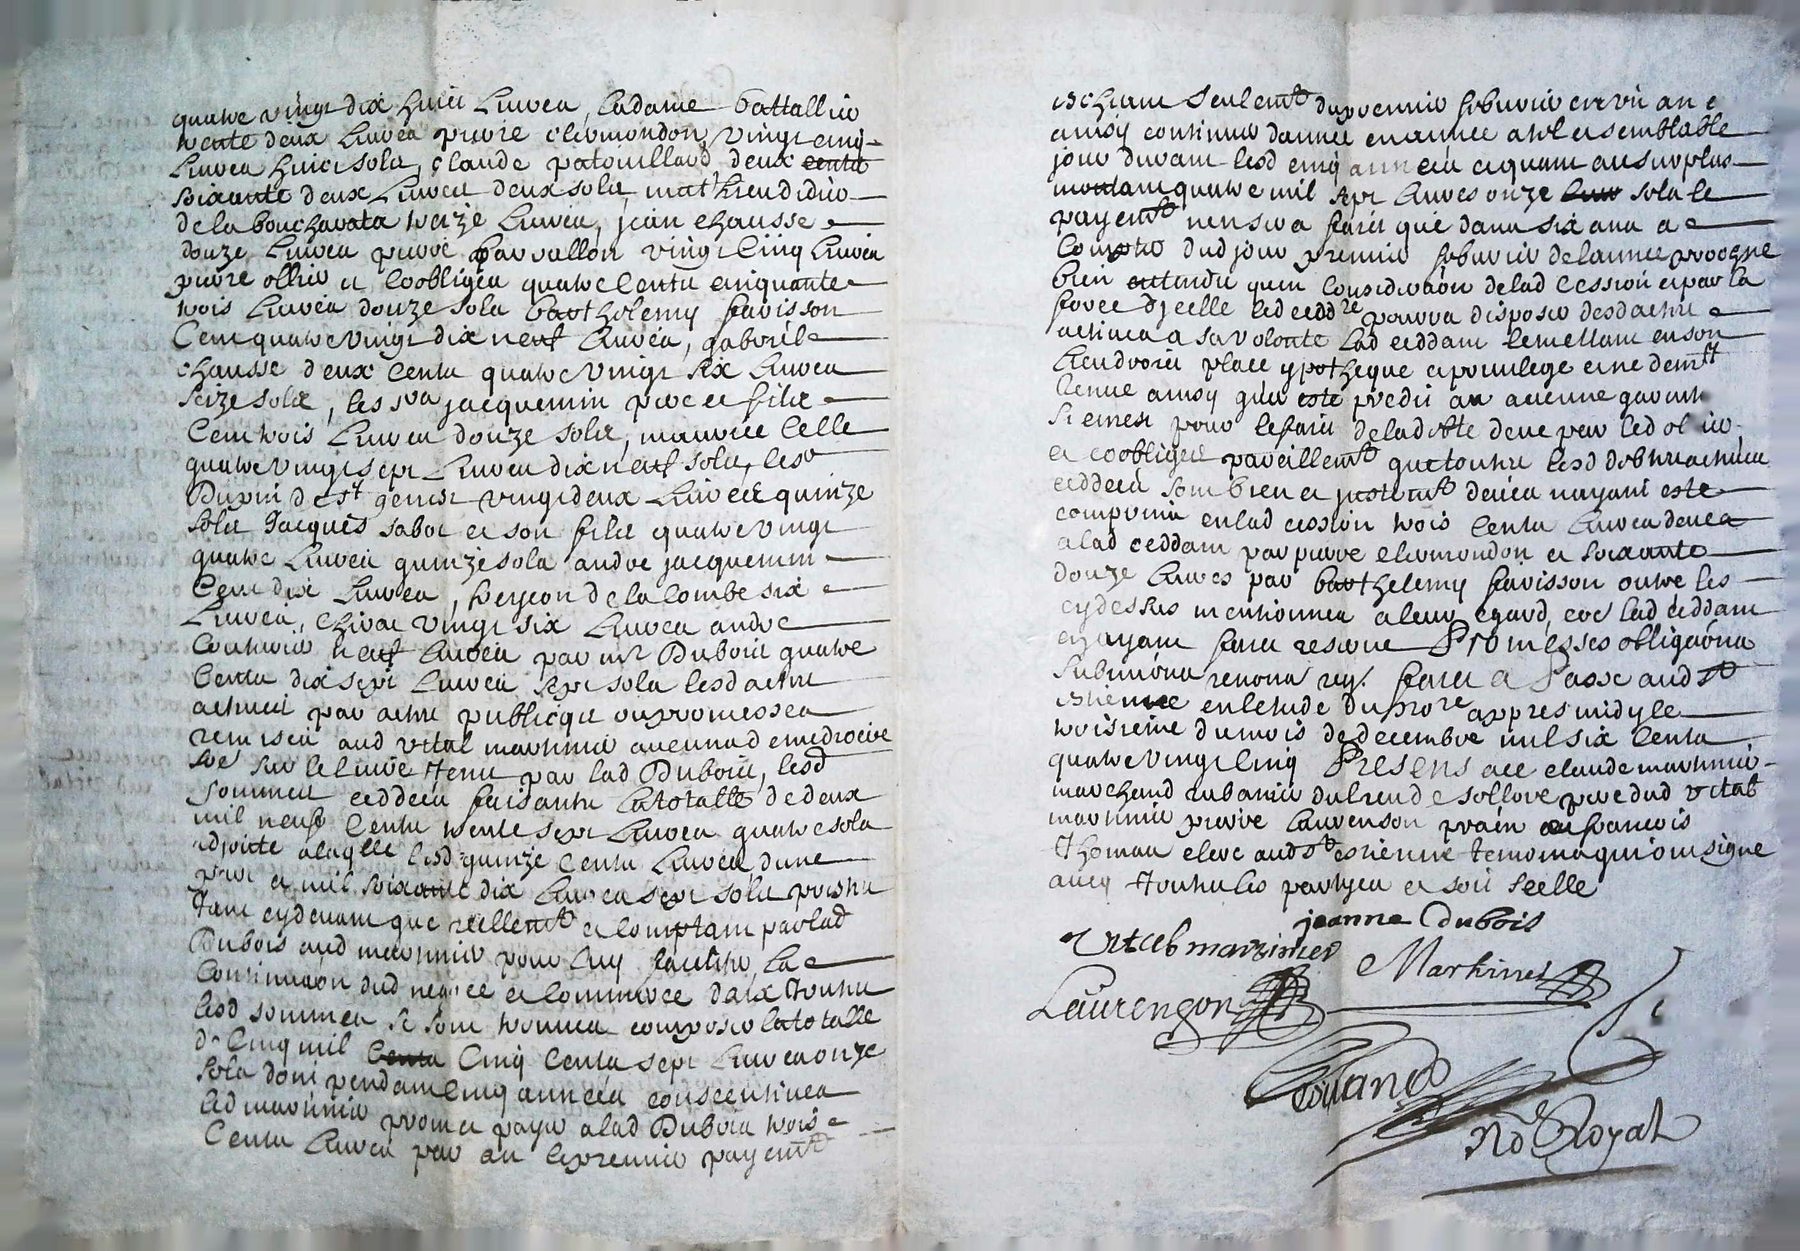 quatre vingt dix huict livres, ladame battallier
trente deux livres pierre clermondon, vingt cinq
livres huict sols, claude patouillard deux cents
soixante deux livres deux sols, mathieu didier
de la boucharata treize livres, jean chausse
douze livres pierre varvallon vingt cinq livres
pierre ollier et cooobligés quatre cents cinquante
trois livres douze sols barthelemy favisson
Cent quatre vingt dix neuf livres, gabriel
chausse deux cents quatre vingt six livres
seize sols, les srs jacquemin pere et fils
Cent trois livres douze sols, maurice celle
quatre vingt sept livres dix neuf sols, lesr
Dupin de st genest vingt deux livres quinze
sols Jacques sabot et son fils quatre vingt
quatre livres quinze sols andre jacquemin
Cent dix livres, de la combe six
Livres, vingt six livres andre
Couturier neuf livres par mr Dubois quatre
Cents dix sept livres sept sols lesd aultres
par actes publicqs ou promesses
remises aud vital martinier
sur le livre tenu par lad Dubois, lesd
sommes ceddees faisants la totalle de deux
mil neuf cents trente sept livres quatre sols
adjoitte alaqlle lesd quinze cents livres dune
part et mil soixante dix livres sept sols presns
tant cydevant que reellemt et comptant par lad
Dubois aud martinier pour luy faciliter la
Continuaon dud negoce et commerce dalx toutes
lesd sommes se sont trouvees composer la totalle
de Cinq mil Cents Cinq Cents sept livres onze
sols dont pendant cinq annees consecutives
led martinier promet payer alad Dubois trois
Cents livres par an le premier payemt
eschant seulemt du premier febvrier en un an et
ainsy continuer dannee en annee a tel et semblable
jour durant lesd cinq annees et quant au surplus
montant quatre mil sept livres onze livr sols le
payemt nen sera faict que dans six ans a
Compter dud jour premier febvrier de lannee proschne
bien entendu quen consideraon de lad cession et par la
force dicelle led ceddre pourra disposer desd aultres
a sa volonte lad ceddant le mettant en son
Lieu droict place ypotheque et privilege et ne demt
tenue ainsy quil este predit au aucune garantie
si nest pour le faict de lad dette deue par led ollier
et coobliges pareillemt que toutes lesd debtes
ceddees sont bien et justemt deues nayant este
comprins en lad cession trois cents livres deues
alad ceddant par pierre clermondon et soixante
douze livres par barthelemy favisson outre les
cydessus mentionnes a leur egard, coe lad ceddant
en ayant faict reserve Promesses obligaons
submions renons rez. faict et Passe aud st
estienne en lestude du nore appres midy le
troisieme du mois de decembre mil six cents
quatre vingt cinq Presens a ce claude martinier
marchand rubanier dud lieu de sollore pere dud vital
martinier pierre laurenson praen et francois
Thomas clerc aud st estienne temoins qui ont signe
avec toutes les partyes et soit scelle
jeanne Dubois
Vital martinier
Martinier
Laurençon
Rolland
No.re Royal